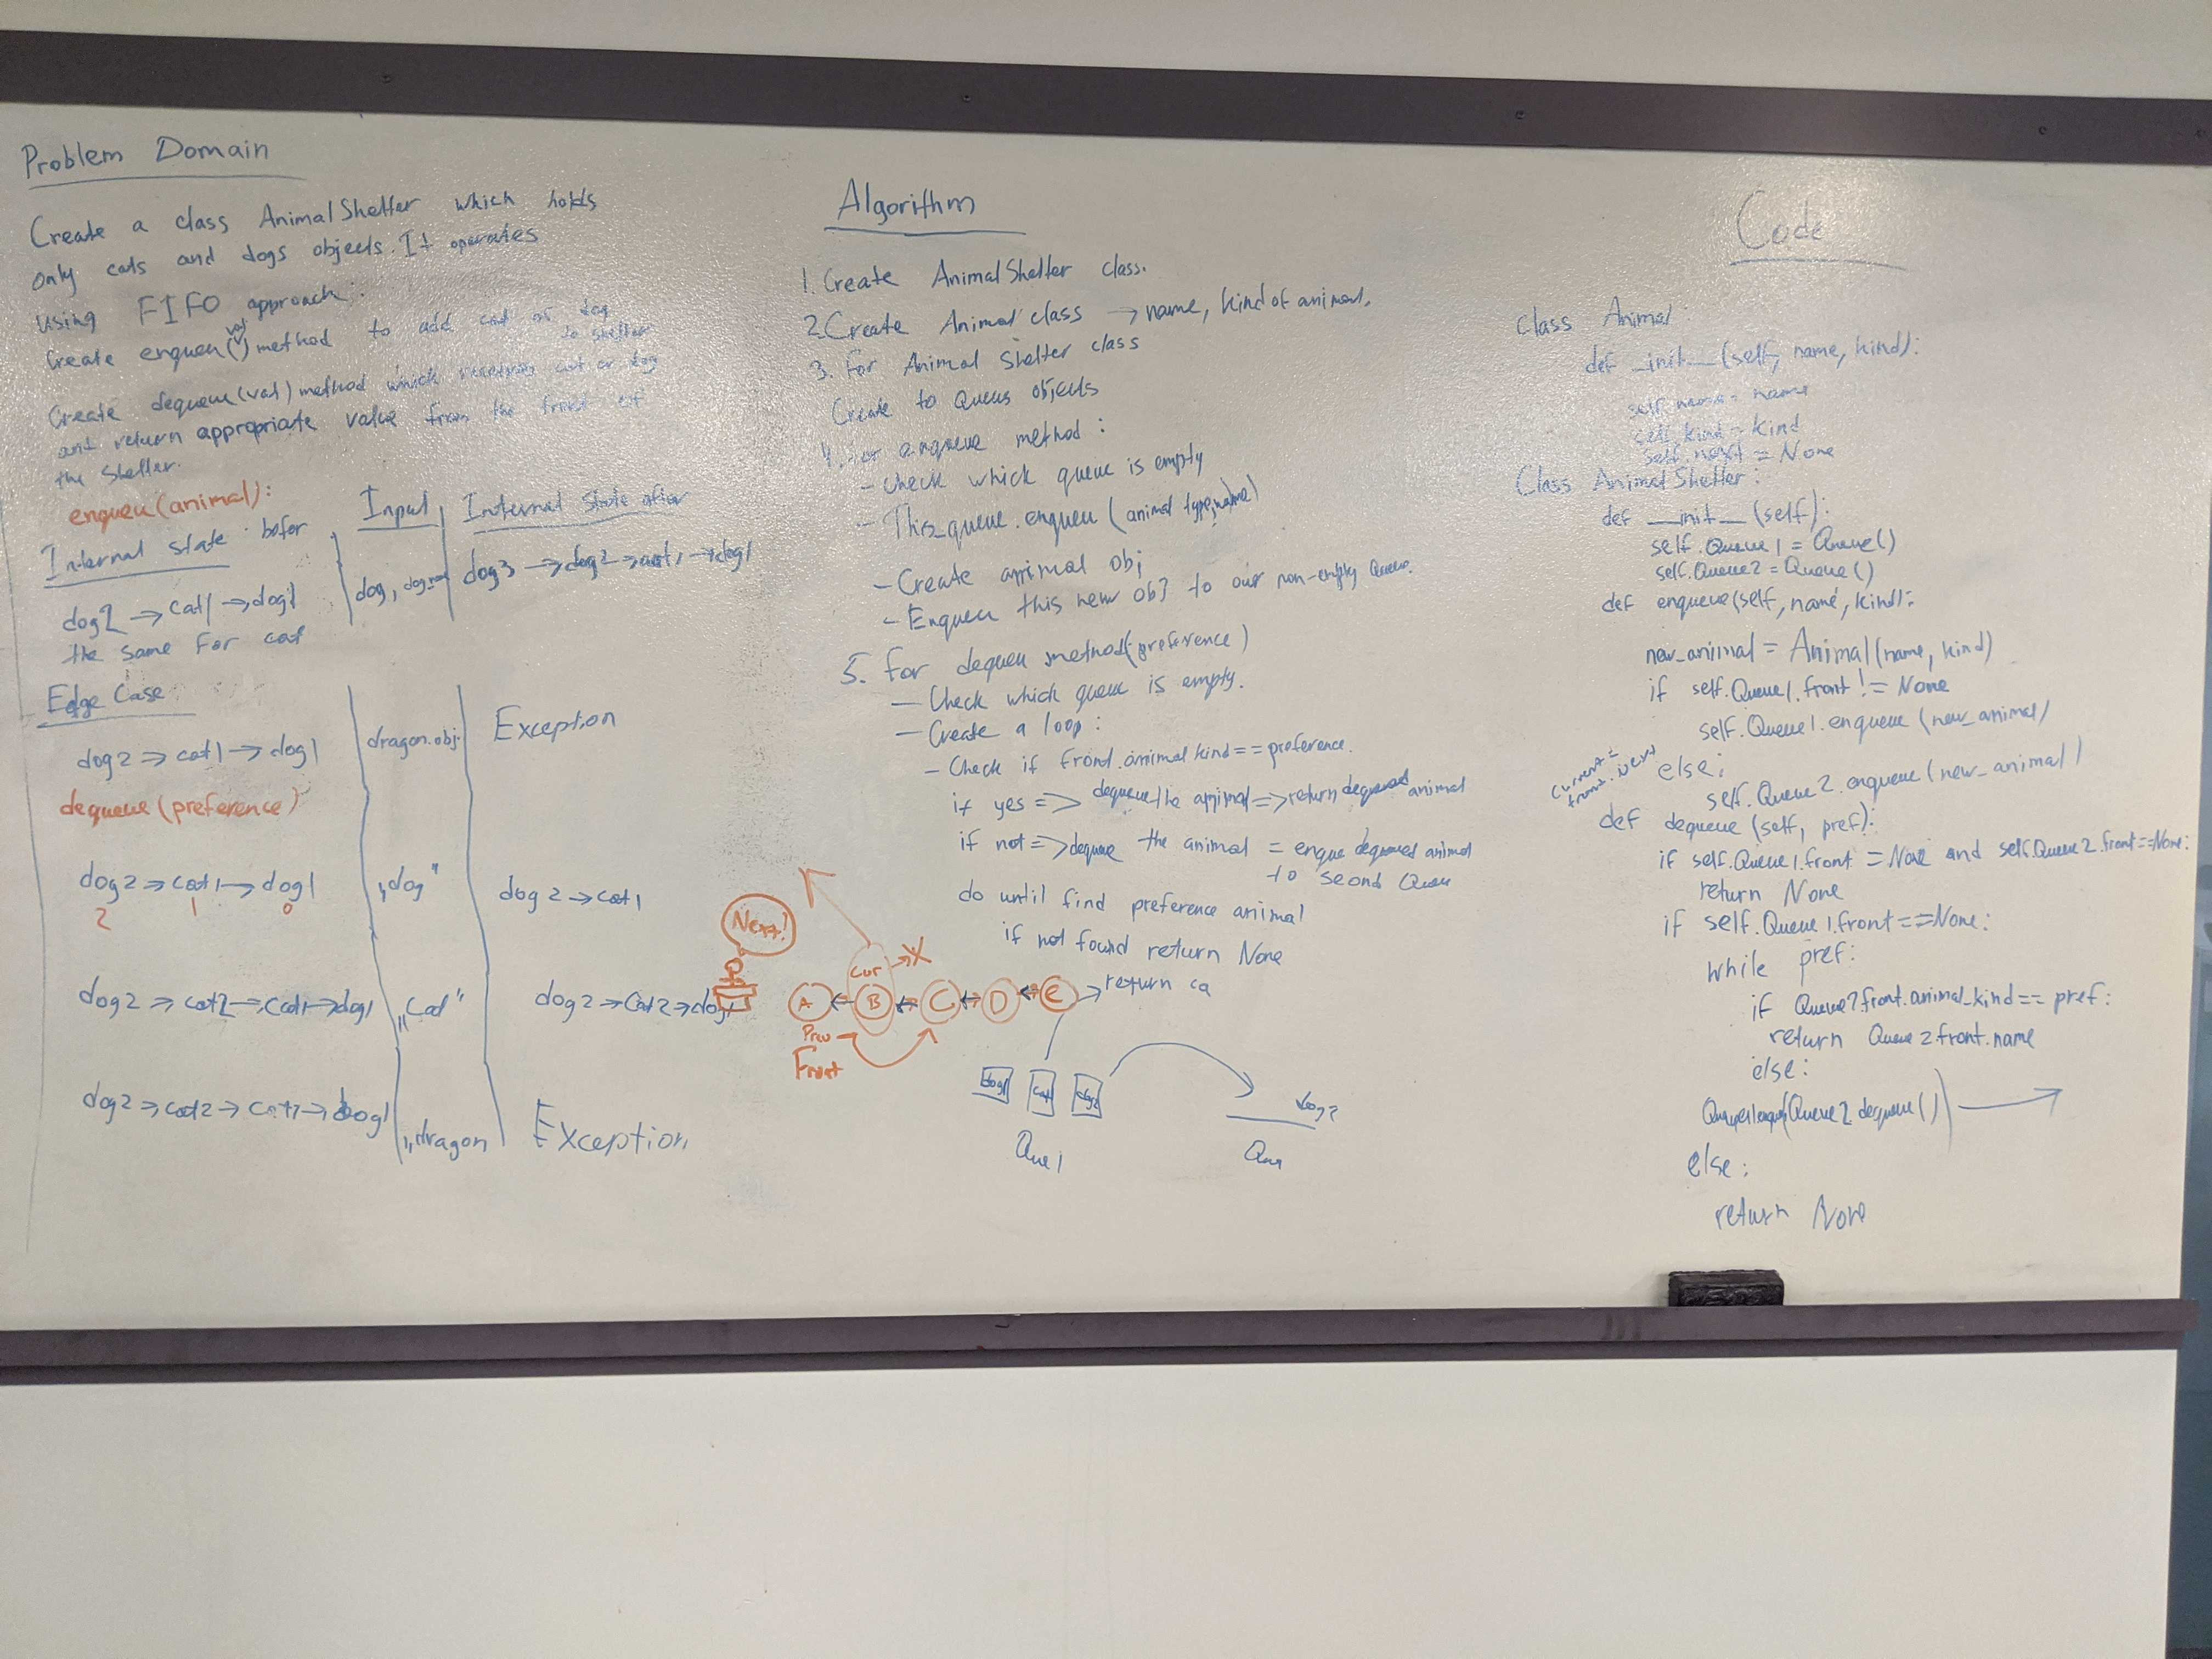 Problem Domain
Create a class AnimalShelter which holds
only cats and dogs objects. It operates
using FIFO approach.
Create enqueu(val) method to add cat or dog
to shelter
Create dequeue(val) method which cat or dog
and return appropriate value from the front of
the shelter.
enqueu(animal):
Internal state befor
Input
Internal state after
dog2 → cat1 → dog1
dog, dog
dog3 → dog2 → cat1 → dog1
the same for cat
Edge Case
dog2 → cat1 → dog1
dragon.obj
Exception
dequeue(preference)
dog2 → cat1 → dog1
"dog"
dog2 → cat1
2 1 0
dog2 → cat2 → cat1 → dog1
"cat"
dog2 → cat2 → dog1
dog2 → cat2 → cat1 → dog1
"dragon
Exception
Algorithm
1. Create AnimalShelter class.
2. Create Animal class → name, kind of animal.
3. For Animal Shelter class
Create to Queus objects
4. for enqueue method:
- check which queue is empty
- This_queue.enqueu(animal type, name)
- Create animal obj
- Enqueu this new obj to our non-empty Queue.
5. for dequeu method(preference)
- Check which queue is empty.
- Create a loop:
- Check if front.animal kind == preference.
if yes => dequeue the animal => return dequeued animal
if not => dequeue the animal = enque dequeued animal
to second Queue
do until find preference animal
if not found return None
Next!
cur → X
A B C D E → return ca
Prev
Front
dog1 cat dog2
dog2
Que1
Que
Code
Class Animal:
def __init__(self, name, kind):
self.name = name
self.kind = kind
self.next = None
Class AnimalShelter:
def __init__(self):
self.Queue1 = Queue()
self.Queue2 = Queue()
def enqueue(self, name, kind):
new_animal = Animal(name, kind)
if self.Queue1.front != None
self.Queue1.enqueue(new_animal)
current =
front.next
else:
self.Queue2.enqueue(new_animal)
def dequeue(self, pref):
if self.Queue1.front = None and self.Queue2.front == None:
return None
if self.Queue1.front == None:
while pref:
if Queue2.front.animal_kind == pref:
return Queue2.front.name
else:
(Queue2.dequeue())
else:
return None